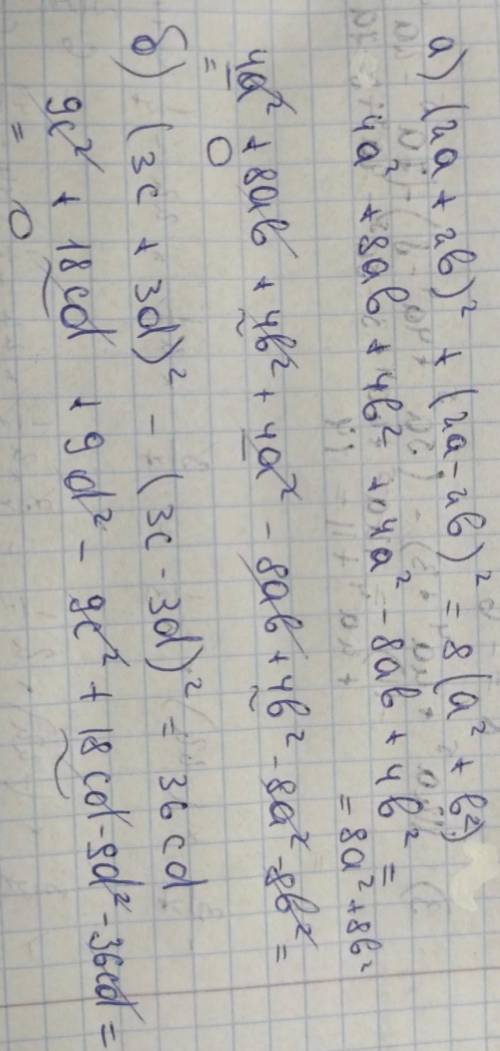 а) (2a + 2b)² + (2a - 2b)² = 8(a² + b²)
4a² + 8ab + 4b² + 4a² - 8ab + 4b² =
= 8a² + 8b²
4a² + 8ab + 4b² + 4a² - 8ab + 4b² - 8a² - 8b² =
= 0
б) (3c + 3d)² - (3c - 3d)² = 36cd
9c² + 18cd + 9d² - 9c² + 18cd - 9d² - 36cd =
= 0